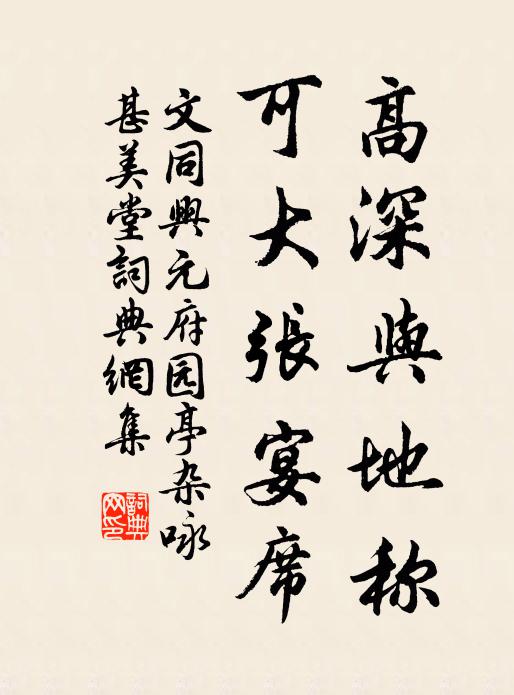 高深與地称
可大張宴席
文同興元府园亭杂咏
甚美堂詞典網集
詞典
网印